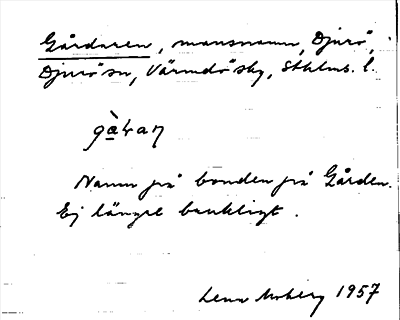 Gårdaren, mansnamn, Djurö,
Djurö sn, Värmdö skg, Sthlms. l.
Namn på bonden på Gården.
Ej längre brukligt.
Lena Moberg 1957